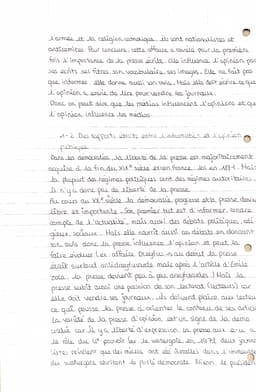 l'armée et la religion catholique, ils sont nationalistes et
antisémites. Pour conclure, cette affaire a révélé pour la première
fois l'importance de la presse écrite. Elle influence l'opinion par
ses écrits, ses titres, son vocabulaire, ses images. Elle ne fait pas
que informer, elle donne aussi son avis. Mais elle doit écrire ce que
l'opinion a envie de lire pour vendre ses journaux.
Donc on peut dire que les médias influencent l'opinions et que
l'opinion influence les médias.
1-2 Des rapports étroits entre l'information et l'opinion
publique
Dans les démocraties, la liberté de la presse est majoritairement
acquise à la fin du XIXe siècle en france : loi en 1881. Mais
la plupart des régimes politiques sont des régimes autoritaires :
il n'y a donc pas de liberté de la presse.
Au cours du XXe siècle la démocratie progresse et la presse devient
libre et importante. Son premier but est d'informer, rendre
compte de l'actualité, mais aussi des débats politiques, reli
gieux, sociaux. Mais elle nourrit aussi ces débats en donnant
son avis donc la presse influence l'opinion et peut la
faire évoluer (ex: affaire Dreyfus : au début la presse
était surtout antidreyfusarde mais après l'article d'Emile
Zola, la presse devient peu à peu dreyfusarde) Mais la
presse subit aussi une pression de son lectorat (lecteurs) car
elle doit vendre ses journaux. Ils doivent plaire aux lecteurs
ce qui pousse la presse à orienter le contenu de ses articles
la variété de la presse d'opinion est un signe de la démo
cratie car il y a liberté d'expression. La presse aux e-u a
le rôle du 4e pouvoir (ex: le watergate en 1972 deux journa
listes révèlent que des micros ont été installés dans l'immeuble
du watergate abritant le parti démocrate. Nixon, le président